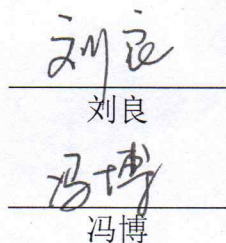 刘良
刘良
冯博
冯博